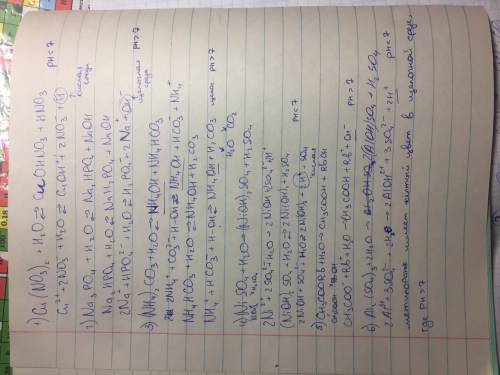 1) Cu(NO3)2 + H2O ⇄ CuOHNO3 + HNO3
Cu2+ + 2NO3- + H2O ⇄ CuOH+ + 2NO3- + H+ pH<7
кислая
среда
2) Na3PO4 + H2O ⇄ Na2HPO4 + NaOH
Na2HPO4 + H2O ⇄ NaH2PO4 + NaOH
2Na+ + HPO4 2- + H2O ⇄ H2PO4- + 2Na+ + OH-
3) (NH4)2CO3 + H2O ⇄ NH4OH + NH4HCO3 щелочная pH>7
среда
2NH4+ + CO3 2- + H-OH ⇄ NH4OH + HCO3- + NH4+
NH4HCO3 + H2O ⇄ NH4OH + H2CO3
NH4+ + HCO3- + H-OH ⇄ NH4OH + H2CO3 pH>7
H2O CO2
4) NiSO4 + H2O → (NiOH)2SO4 + H2SO4
2Ni2+ + 2SO4 2- + H2O → 2NiOH + SO4 2- + H+
(NiOH)2SO4 + H2O → 2Ni(OH)2 + H2SO4 pH<7
кислая
5) CH3COORb + H2O → CH3COOH + RbOH
CH3COO- + Rb+ + H2O - CH3COOH + Rb+ + OH- pH>7
6) Al2(SO4)3 + 2H2O → (AlOH)SO4 + H2SO4
2Al3+ + 3SO4 2- + 2H2O → 2AlOH2+ + 3SO4 2- + 2H+ pH<7
метилоранж имеет желтый цвет в щелочной среде,
где pH>7